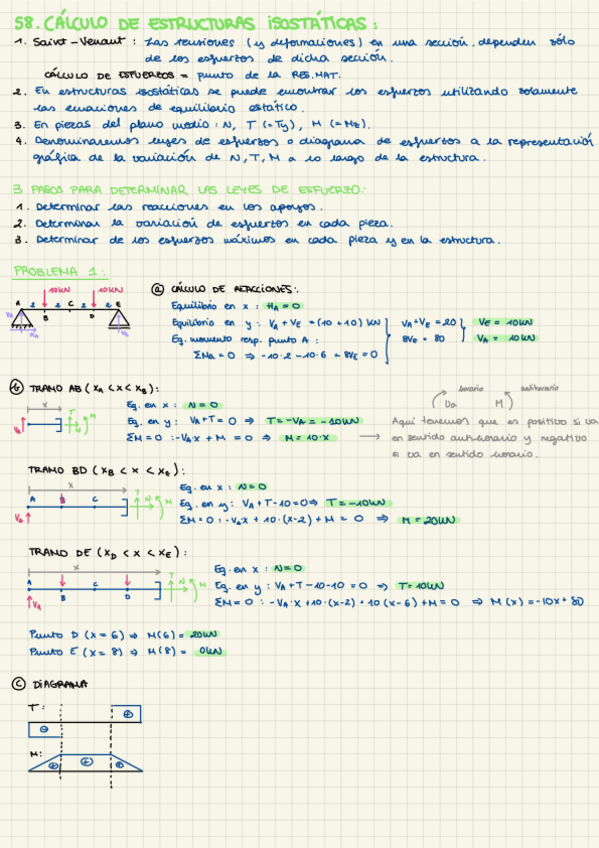 S8. CÁLCULO DE ESTRUCTURAS ISOSTÁTICAS:
1. Saint-Venant: Las tensiones (y deformaciones) en una sección, dependen sólo
de los esfuerzos de dicha sección.
CÁLCULO DE ESFUERZOS = punto de la RES.MAT.
2. En estructuras isostáticas se puede encontrar los esfuerzos utilizando solamente
las ecuaciones de equilibrio estático.
3. En piezas del plano medio: N, T (=Ty), M (=Mz).
4. Denominaremos leyes de esfuerzos o diagrama de esfuerzos a la representación
gráfica de la variación de N, T, M a lo largo de la estructura.
3 PASOS PARA DETERMINAR LAS LEYES DE ESFUERZO:
1. Determinar las reacciones en los apoyos.
2. Determinar la variación de esfuerzos en cada pieza.
3. Determinar de los esfuerzos máximos en cada pieza y en la estructura.
PROBLEMA 1:
10KN 10KN
A 2 2 C 2 2 E
B D
VA HA VE
a CÁLCULO DE REACCIONES:
Equilibrio en x: HA = 0
Equilibrio en y: VA + VE = (10 + 10) KN
Eq. momento resp. punto A:
ΣMA = 0 ⇒ -10·2 -10·6 + 8VE = 0
VA + VE = 20
8VE = 80
VE = 10KN
VA = 10KN
b TRAMO AB (XA < X < XB):
X
VA T N M
Eq. en x: N = 0
Eq. en y: VA + T = 0 ⇒ T = -VA = -10KN
ΣM = 0: -VA·X + M = 0 ⇒ M = 10·X
horario antihorario
Va M
Aquí tenemos que es positivo si va
en sentido antihorario y negativo
si va en sentido horario.
TRAMO BD (XB < X < XE):
X
A B C T N M
VA
Eq. en x: N = 0
Eq. en y: VA + T - 10 = 0 ⇒ T = -10KN
ΣM = 0: -VA X + 10·(X-2) + M = 0 ⇒ M = 20KN
TRAMO DE (XD < X < XE):
X
A B C D T N M
VA
Eq. en x: N = 0
Eq. en y: VA + T - 10 - 10 = 0 ⇒ T = 10KN
ΣM = 0: -VA·X + 10·(X-2) + 10(X-6) + M = 0 ⇒ M(X) = -10X + 80
Punto D (X = 6) ⇒ M(6) = 20KN
Punto E (X = 8) ⇒ M(8) = 0KN
c DIAGRAMA
T: + -
M: + + +